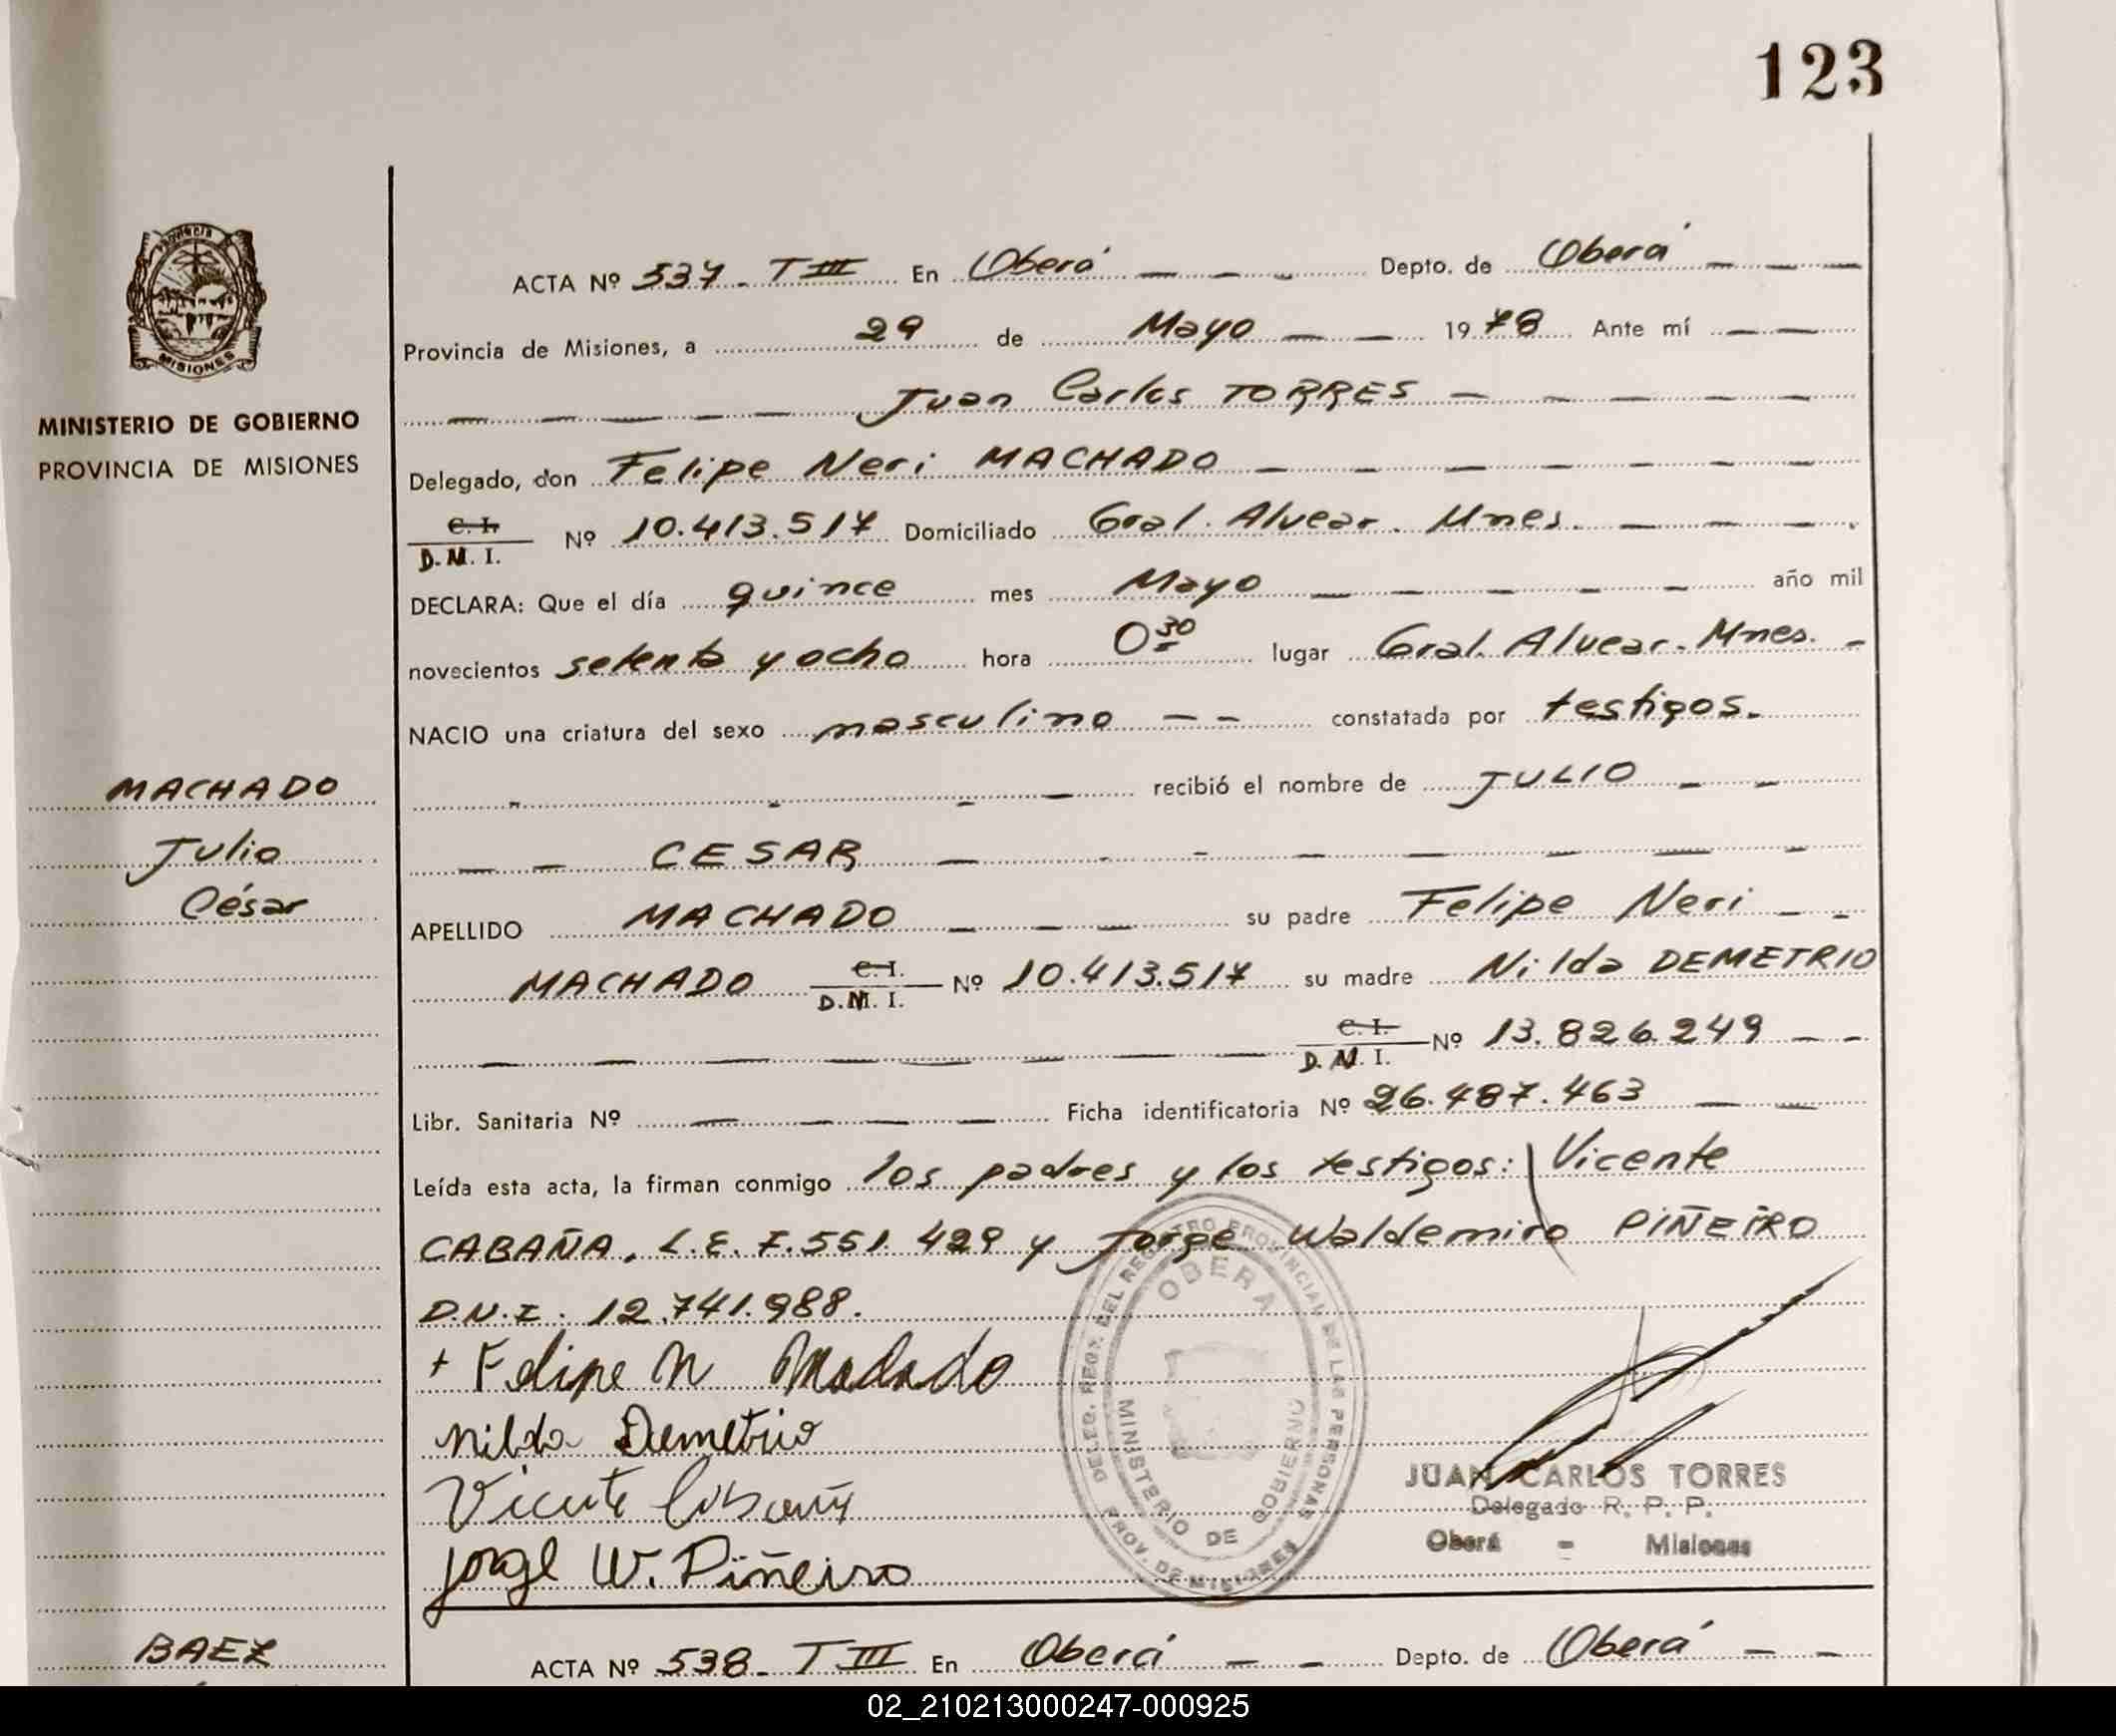 123
Provincia
MISIONES
MINISTERIO DE GOBIERNO
PROVINCIA DE MISIONES
MACHADO
Julio
César
ACTA Nº 537 - T III En Oberá Depto. de Oberá
Provincia de Misiones, a 29 de Mayo 1978 Ante mí
Juan Carlos TORRES
Delegado, don Felipe Neri MACHADO
C. I.
D. N. I. Nº 10.413.517 Domiciliado Gral. Alvear. Mnes.
DECLARA: Que el día quince mes Mayo año mil
novecientos setenta y ocho hora 0 30 lugar Gral. Alvear. Mnes.
NACIO una criatura del sexo masculino constatada por testigos.
recibió el nombre de JULIO
CESAR
APELLIDO MACHADO su padre Felipe Neri
MACHADO C. I. D. N. I. Nº 10.413.517 su madre Nilda DEMETRIO
C. I. D. N. I. Nº 13.826.249
Libr. Sanitaria Nº Ficha identificatoria Nº 26.487.463
Leída esta acta, la firman conmigo los padres y los testigos: Vicente
CABAÑA. L.E. 7.551.429 y Jorge Waldemiro PIÑEIRO
D.N.I. 12.741.988.
+ Felipe N Machado
Nilda Demetrio
Vicente Cabaña
Jorge W. Piñeiro
DELEG. REGT. DEL REGISTRO PROVINCIAL DE LAS PERSONAS
OBERA
MINISTERIO DE GOBIERNO
PROV. DE MISIONES
JUAN CARLOS TORRES
Delegado R. P. P.
Oberá - Misiones
BAEZ
ACTA Nº 538 - T III En Oberá Depto. de Oberá
02_210213000247-000925